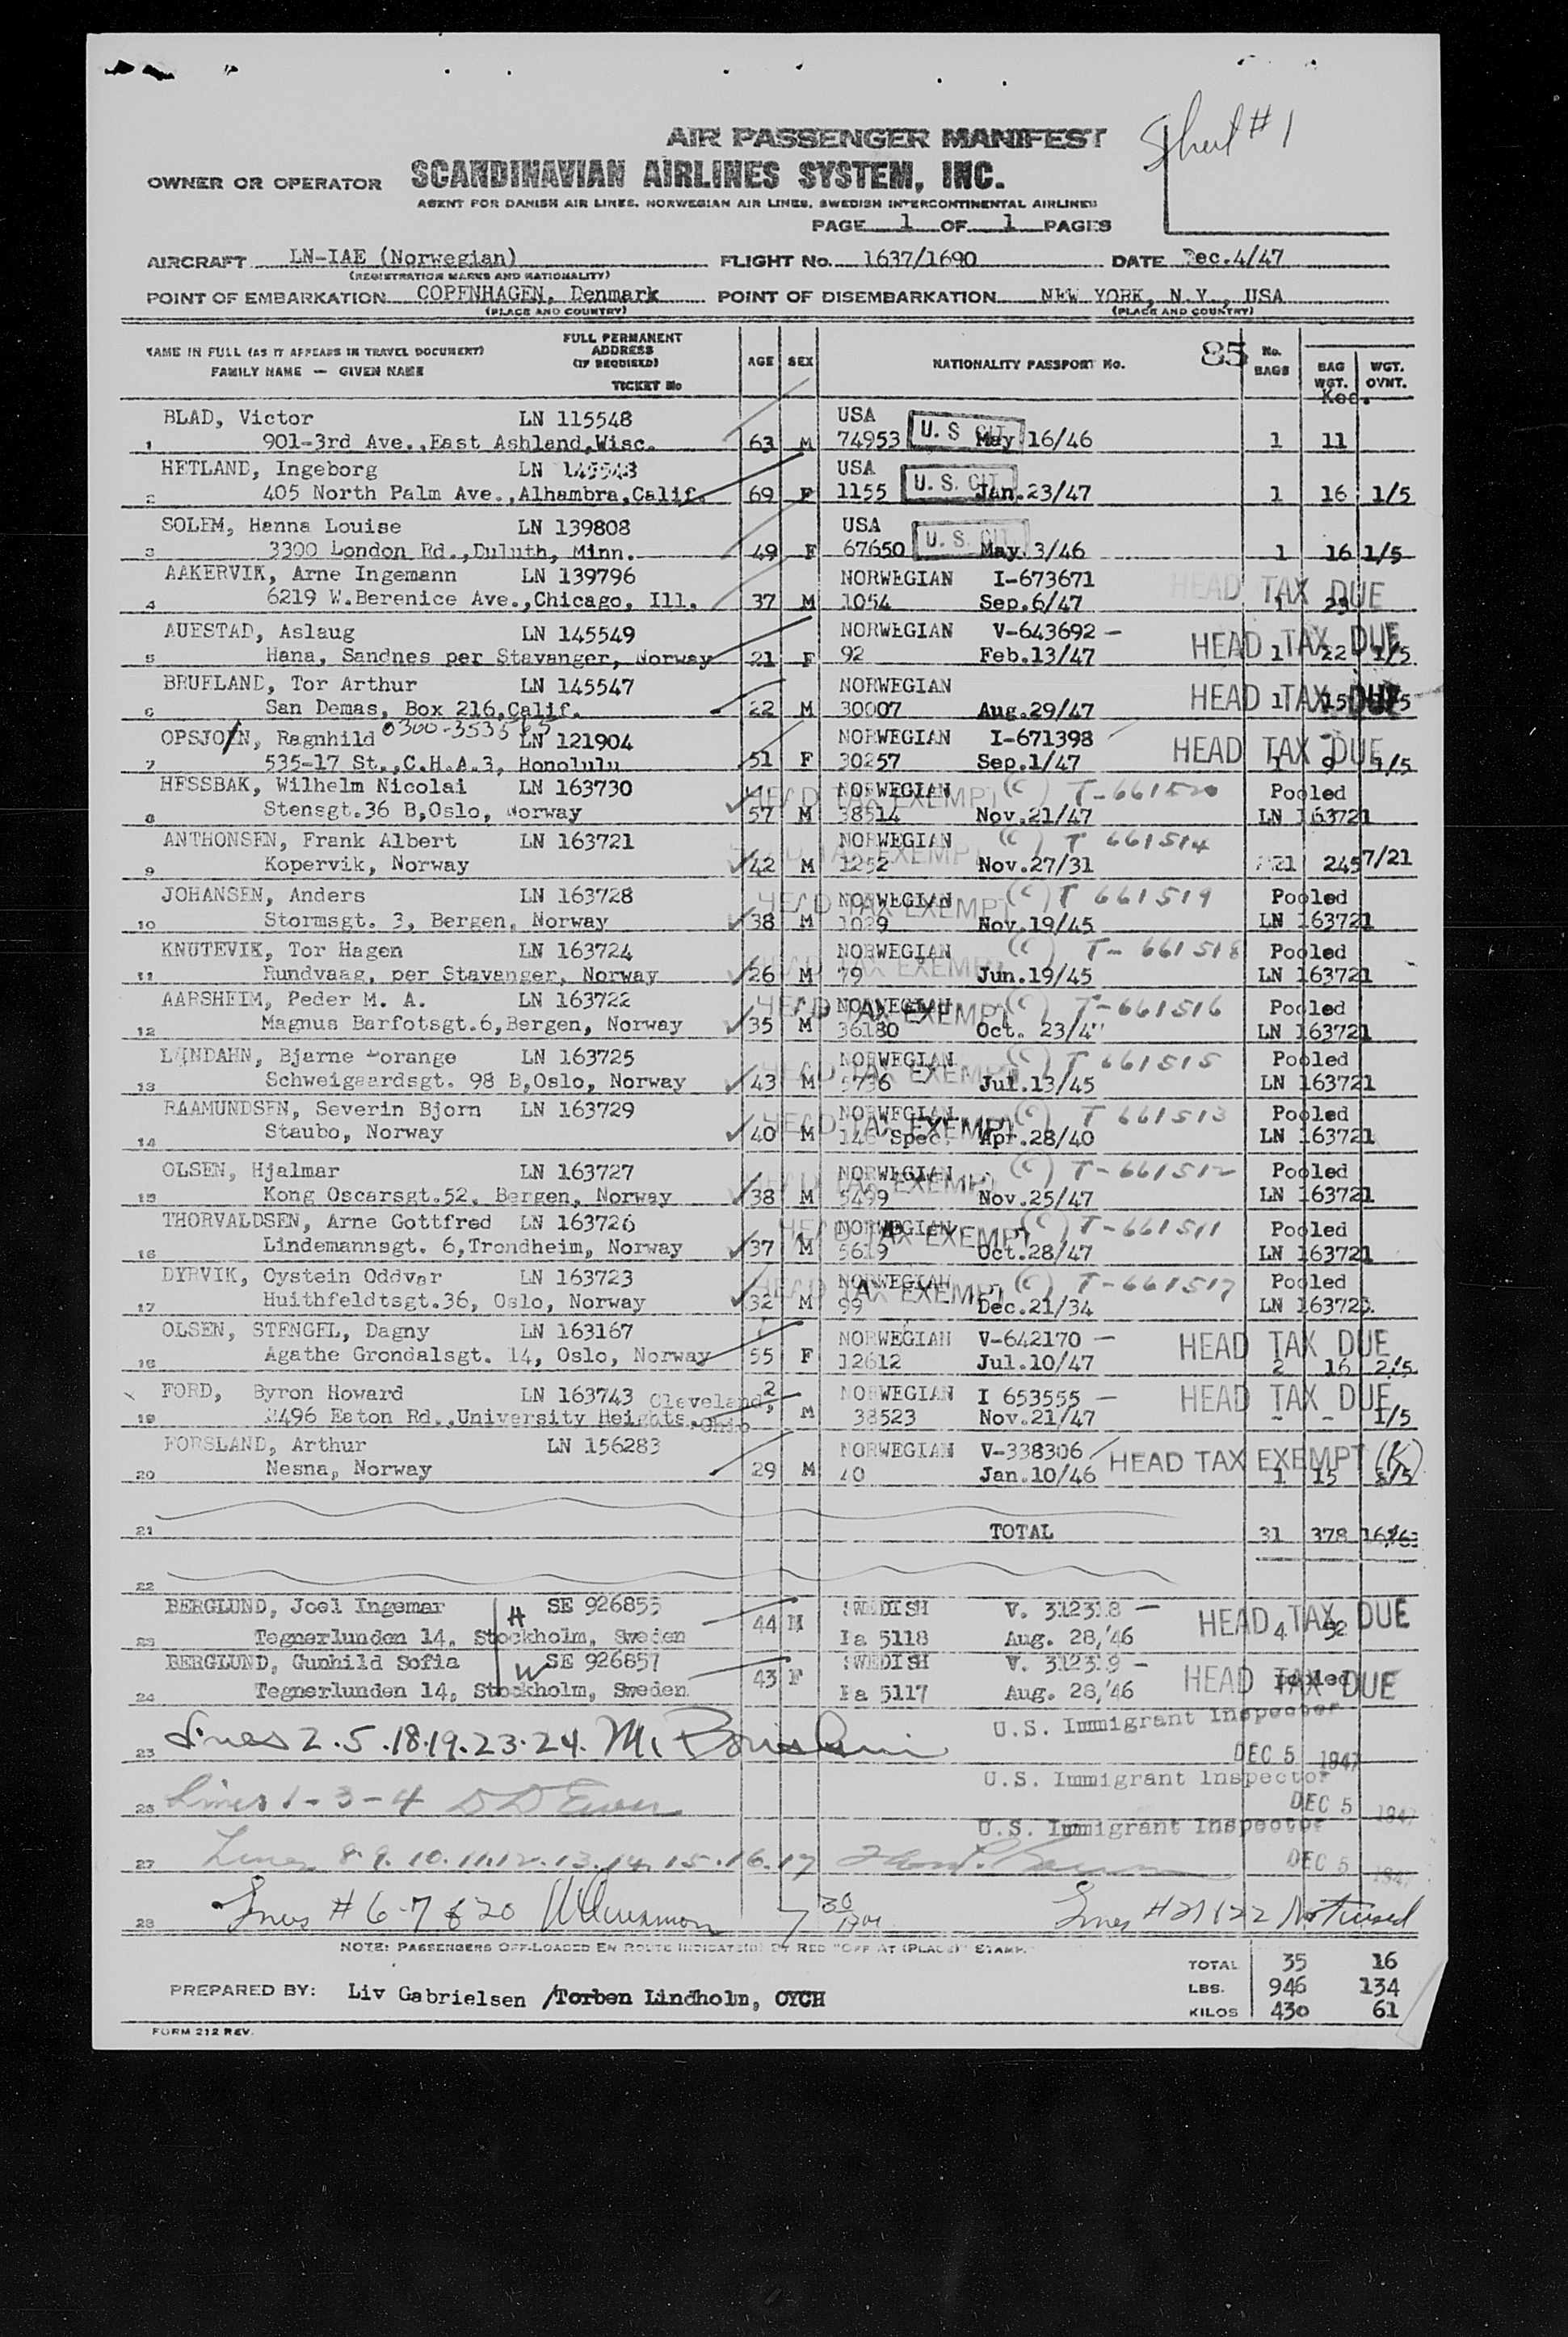 Sheet #1
AIR PASSENGER MANIFEST
OWNER OR OPERATOR SCANDINAVIAN AIRLINES SYSTEM, INC.
AGENT FOR DANISH AIR LINES, NORWEGIAN AIR LINES, SWEDISH INTERCONTINENTAL AIRLINES
PAGE 1 OF 1 PAGES
AIRCRAFT LN-IAE (Norwegian) FLIGHT No. 1637/1690 DATE Dec.4/47
(REGISTRATION MARKS AND NATIONALITY)
POINT OF EMBARKATION COPENHAGEN, Denmark POINT OF DISEMBARKATION NEW YORK, N.Y., USA
(PLACE AND COUNTRY) (PLACE AND COUNTRY)
NAME IN FULL (AS IT APPEARS IN TRAVEL DOCUMENT)
FAMILY NAME — GIVEN NAME
FULL PERMANENT
ADDRESS
(IF REQUIRED)
TICKET No
AGE SEX NATIONALITY PASSPORT No. 85 No. BAGS BAG WGT. WGT. OVNT.
BLAD, Victor LN 115548 USA
1 901-3rd Ave.,East Ashland,Wisc. 63 M 74953 U.S. CIT. May 16/46 1 11
HETLAND, Ingeborg LN 145548 USA
2 405 North Palm Ave.,Alhambra,Calif. 69 F 1155 U.S. CIT. Jan.23/47 1 16 1/5
SOLEM, Hanna Louise LN 139808 USA
3 3300 London Rd.,Duluth, Minn. 49 F 67650 U.S. CIT. May.3/46 1 16 1/5
AAKERVIK, Arne Ingemann LN 139796 NORWEGIAN I-673671 HEAD TAX DUE
4 6219 W.Berenice Ave.,Chicago, Ill. 37 M 1054 Sep.6/47 1 23
AUESTAD, Aslaug LN 145549 NORWEGIAN V-643692 — HEAD TAX DUE
5 Hana, Sandnes per Stavanger, Norway 21 F 92 Feb.13/47 1 22 1/5
BRUFLAND, Tor Arthur LN 145547 NORWEGIAN HEAD TAX DUE
6 San Demas, Box 216,Calif. 22 M 30007 Aug.29/47 1 15
OPSJON, Ragnhild LN 121904 NORWEGIAN I-671398 HEAD TAX DUE
7 535-17 St.,C.H.A.3, Honolulu 51 F 30257 Sep.1/47 1 9 1/5
HESSBAK, Wilhelm Nicolai LN 163730 HEAD TAX EXEMPT NORWEGIAN (C) T-661520 Pooled
8 Stensgt.36 B,Oslo, Norway 57 M 38514 Nov.21/47 LN 163721
ANTHONSEN, Frank Albert LN 163721 HEAD TAX EXEMPT NORWEGIAN (C) T 661514
9 Kopervik, Norway 42 M 1252 Nov.27/31 21 245 7/21
JOHANSEN, Anders LN 163728 HEAD TAX EXEMPT NORWEGIAN (C) T 661519 Pooled
10 Stormsgt. 3, Bergen, Norway 38 M 1029 Nov.19/45 LN 163721
KNUTEVIK, Tor Hagen LN 163724 HEAD TAX EXEMPT NORWEGIAN (C) T-661518 Pooled
11 Rundvaag, per Stavanger, Norway 26 M 79 Jun.19/45 LN 163721
AARSHEIM, Peder M. A. LN 163722 HEAD TAX EXEMPT NORWEGIAN (C) T-661516 Pooled
12 Magnus Barfotsgt.6,Bergen, Norway 35 M 36180 Oct. 23/4 LN 163721
LUNDAHN, Bjarne Lorange LN 163725 HEAD TAX EXEMPT NORWEGIAN (C) T 661515 Pooled
13 Schweigaardsgt. 98 B,Oslo, Norway 43 M 5736 Jul.13/45 LN 163721
RAAMUNDSEN, Severin Bjorn LN 163729 HEAD TAX EXEMPT NORWEGIAN (C) T 661513 Pooled
14 Staubo, Norway 40 M Spec. Apr.28/40 LN 163721
OLSEN, Hjalmar LN 163727 HEAD TAX EXEMPT NORWEGIAN (C) T-661512 Pooled
15 Kong Oscarsgt.52, Bergen, Norway 38 M 5499 Nov.25/47 LN 163721
THORVALDSEN, Arne Gottfred LN 163726 HEAD TAX EXEMPT NORWEGIAN (C) T-661511 Pooled
16 Lindemannsgt. 6,Trondheim, Norway 37 M 5619 Oct.28/47 LN 163721
DYRVIK, Oystein Oddvar LN 163723 HEAD TAX EXEMPT NORWEGIAN (C) T-661517 Pooled
17 Huithfeldtsgt.36, Oslo, Norway 32 M 99 Dec.21/34 LN 163723
OLSEN, STENGEL, Dagny LN 163167 NORWEGIAN V-642170 — HEAD TAX DUE
18 Agathe Grondalsgt. 14, Oslo, Norway 55 F 12612 Jul.10/47 2 16 2/5
FORD, Byron Howard LN 163743 Cleveland, 2 NORWEGIAN I 653555 — HEAD TAX DUE
19 2496 Eaton Rd.,University Heights, Ohio M 38523 Nov.21/47 - - 1/5
FORSLAND, Arthur LN 156283 NORWEGIAN V-338306 HEAD TAX EXEMPT (K)
20 Nesna, Norway 29 M 40 Jan.10/46 1 15
21 TOTAL 31 378
22
BERGLUND, Joel Ingemar H SE 926855 44 M SWEDISH V. 312318 — HEAD TAX DUE
23 Tegnerlunden 14, Stockholm, Sweden Ia 5118 Aug. 28,'46 4 52
BERGLUND, Gunhild Sofia W SE 926857 43 F SWEDISH V. 312319 — HEAD TAX DUE
24 Tegnerlunden 14, Stockholm, Sweden Ia 5117 Aug. 28,'46 Pooled
Lines 2.5.18.19.23.24. U.S. Immigrant Inspector
DEC 5 1947
U.S. Immigrant Inspector
26 Lines 1-3-4 DEC 5 1947
U.S. Immigrant Inspector
27 Lines 8.9.10.11.12.13.14.15.16.17 DEC 5 1947
28 Lines #6-7 & 20 Lines #21 & 22 Not used
NOTE: PASSENGERS OFF-LOADED EN ROUTE INDICATE(D) BY RED "OFF AT (PLACE)" STAMP.
TOTAL 35 16
PREPARED BY: Liv Gabrielsen /Torben Lindholm, OYCH LBS. 946 134
KILOS 430 61
FORM 212 REV.